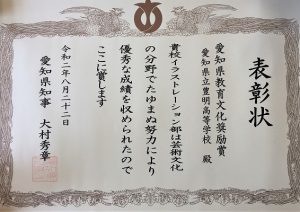 表彰状
愛知県教育文化奨励賞
愛知県立豊明高等学校 殿
貴校イラストレーション部は芸術文化
の分野でたゆまぬ努力により
優秀な成績を収められたので
ここに賞します
令和二年八月二十二日
愛知県知事 大村秀章